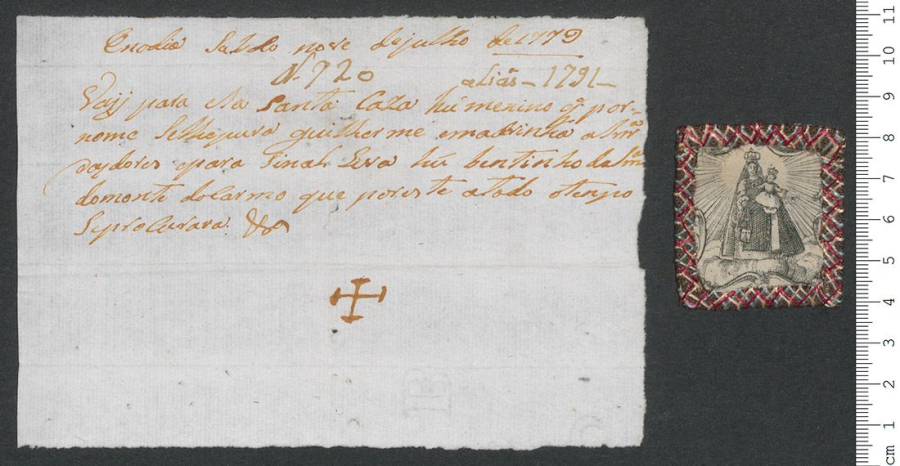 Em o dia Sabdo nove de julho de 1779
N. 720 aliàs - 1791 -
Vaij para esta Santa Caza hũ menino q̃ por
nome se lhe pora guilherme e madrinha a Snrã
das dores e para sinal Leva hũ bentinho da Snrã
do monte do Carmo que por este a todo o tenpo
se procurara &a
11
10
9
8
7
6
5
4
3
2
1
cm